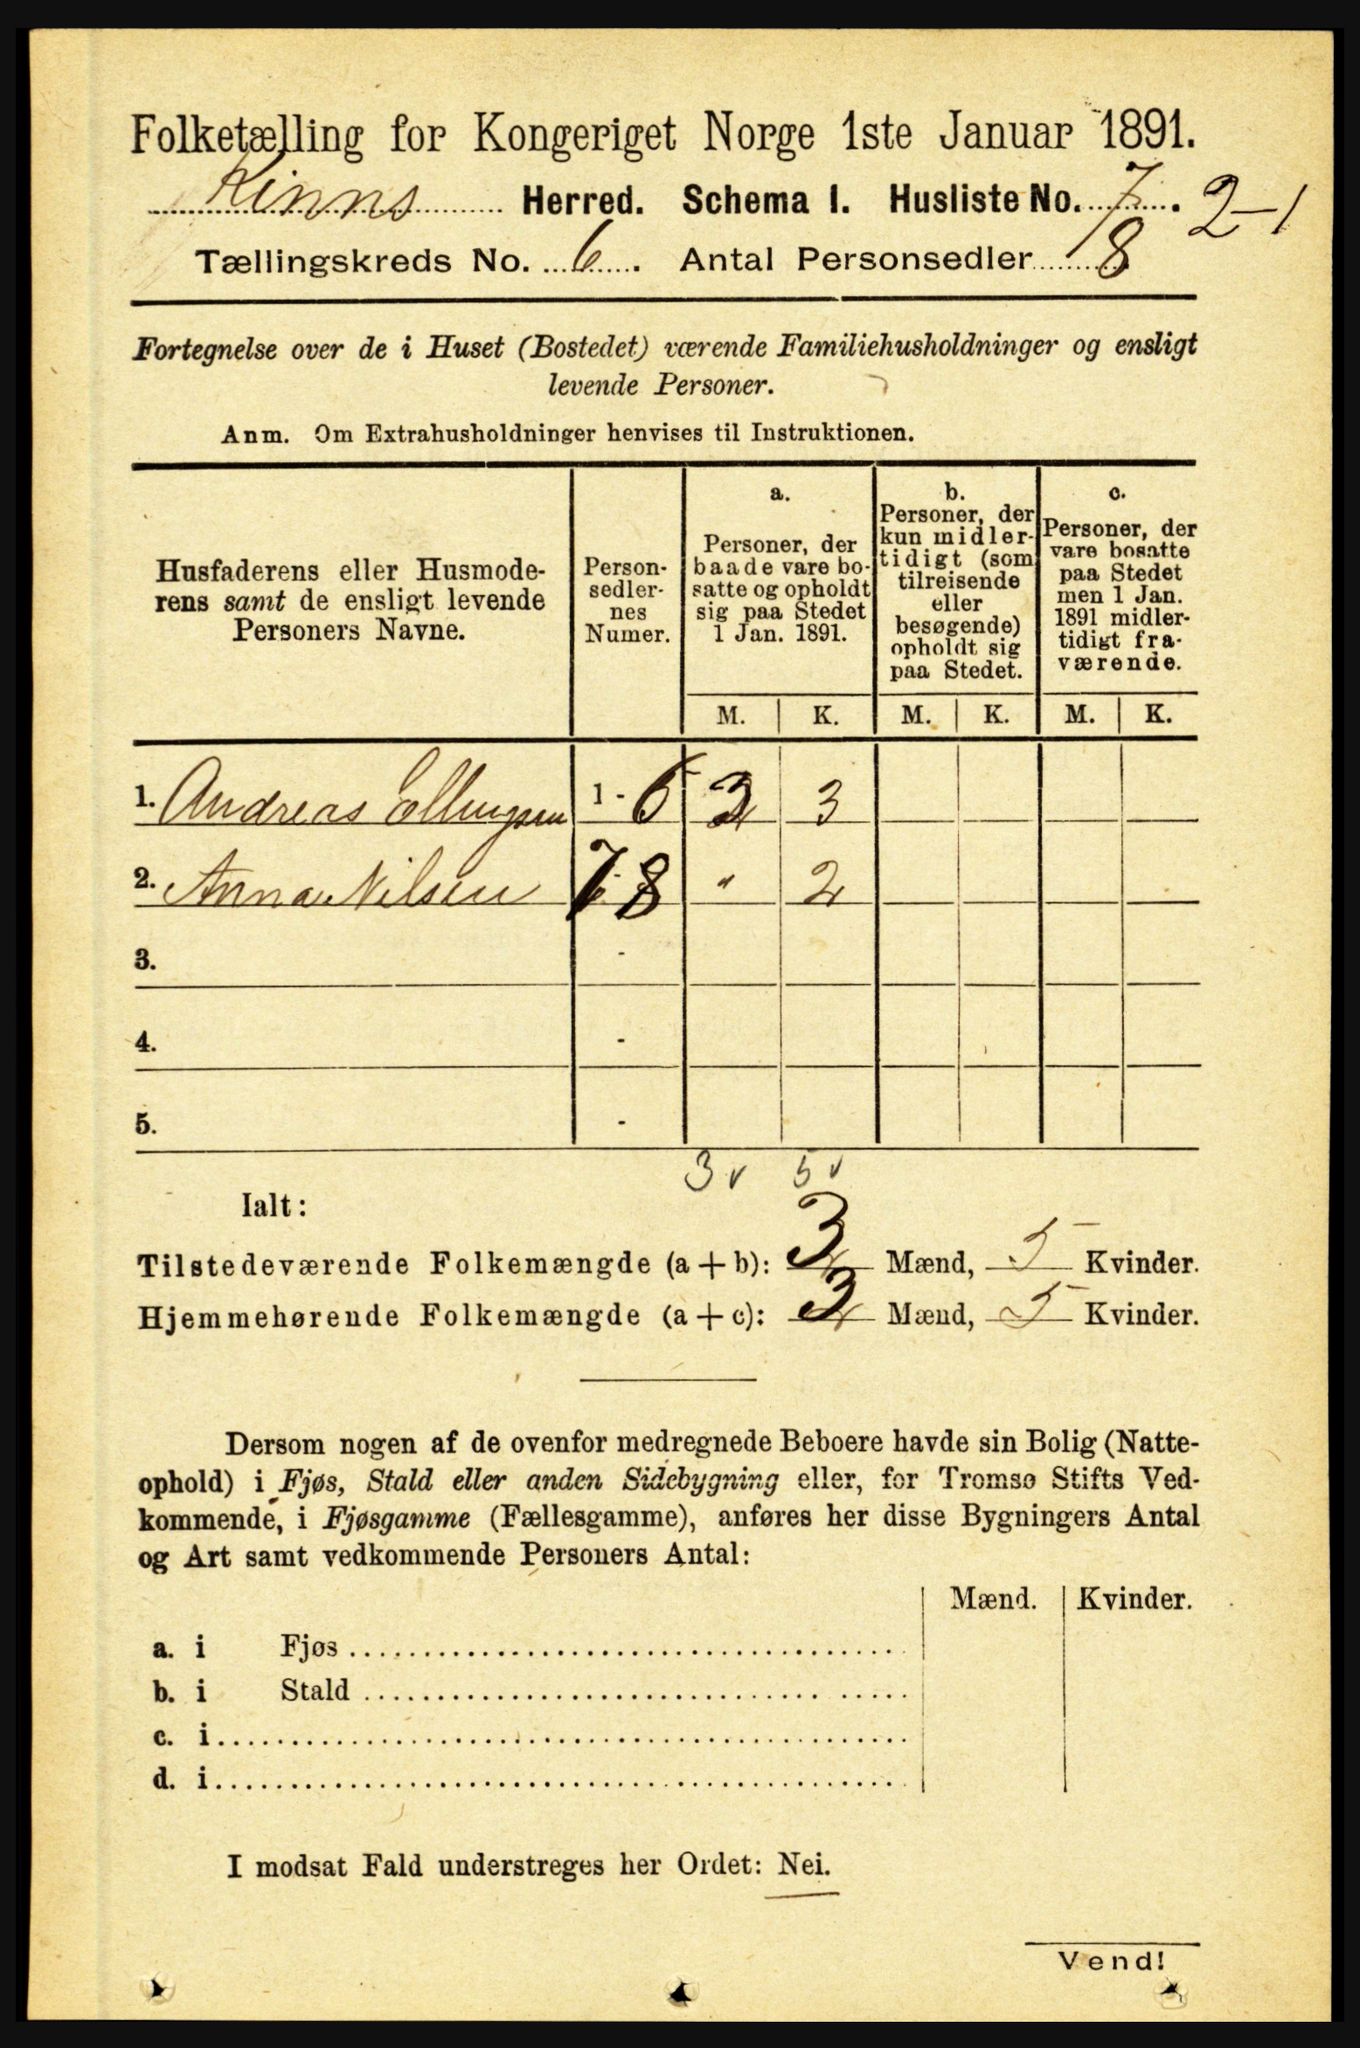 Folketælling for Kongeriget Norge 1ste Januar 1891.
Kinns Herred. Schema I. Husliste No. 7. 2-1
Tællingskreds No. 6. Antal Personsedler 8
Fortegnelse over de i Huset (Bostedet) værende Familiehusholdninger og ensligt
levende Personer.
Anm. Om Extrahusholdninger henvises til Instruktionen.
Husfaderens eller Husmode-
rens samt de ensligt levende
Personers Navne.
Person-
sedler-
nes
Numer.
a.
Personer, der
baade vare bo-
satte og opholdt
sig paa Stedet
1 Jan. 1891.
b.
Personer, der
kun midler-
tidigt (som
tilreisende
eller
besøgende)
opholdt sig
paa Stedet.
c.
Personer, der
vare bosatte
paa Stedet
men 1 Jan.
1891 midler-
tidigt fra-
værende.
M. K. M. K. M. K.
1. Andreas Ellingsen 1 - 6 3 3
2. Anna Nilsen 7 - 8 " 2
3. -
4. -
5. -
3 v 5 v
Ialt:
Tilstedeværende Folkemængde (a + b): 3 Mænd, 5 Kvinder.
Hjemmehørende Folkemængde (a + c): 3 Mænd, 5 Kvinder.
Dersom nogen af de ovenfor medregnede Beboere havde sin Bolig (Natte-
ophold) i Fjøs, Stald eller anden Sidebygning eller, for Tromsø Stifts Ved-
kommende, i Fjøsgamme (Fællesgamme), anføres her disse Bygningers Antal
og Art samt vedkommende Personers Antal:
Mænd. Kvinder.
a. i Fjøs
b. i Stald
c. i
d. i
I modsat Fald understreges her Ordet: Nei.
Vend!